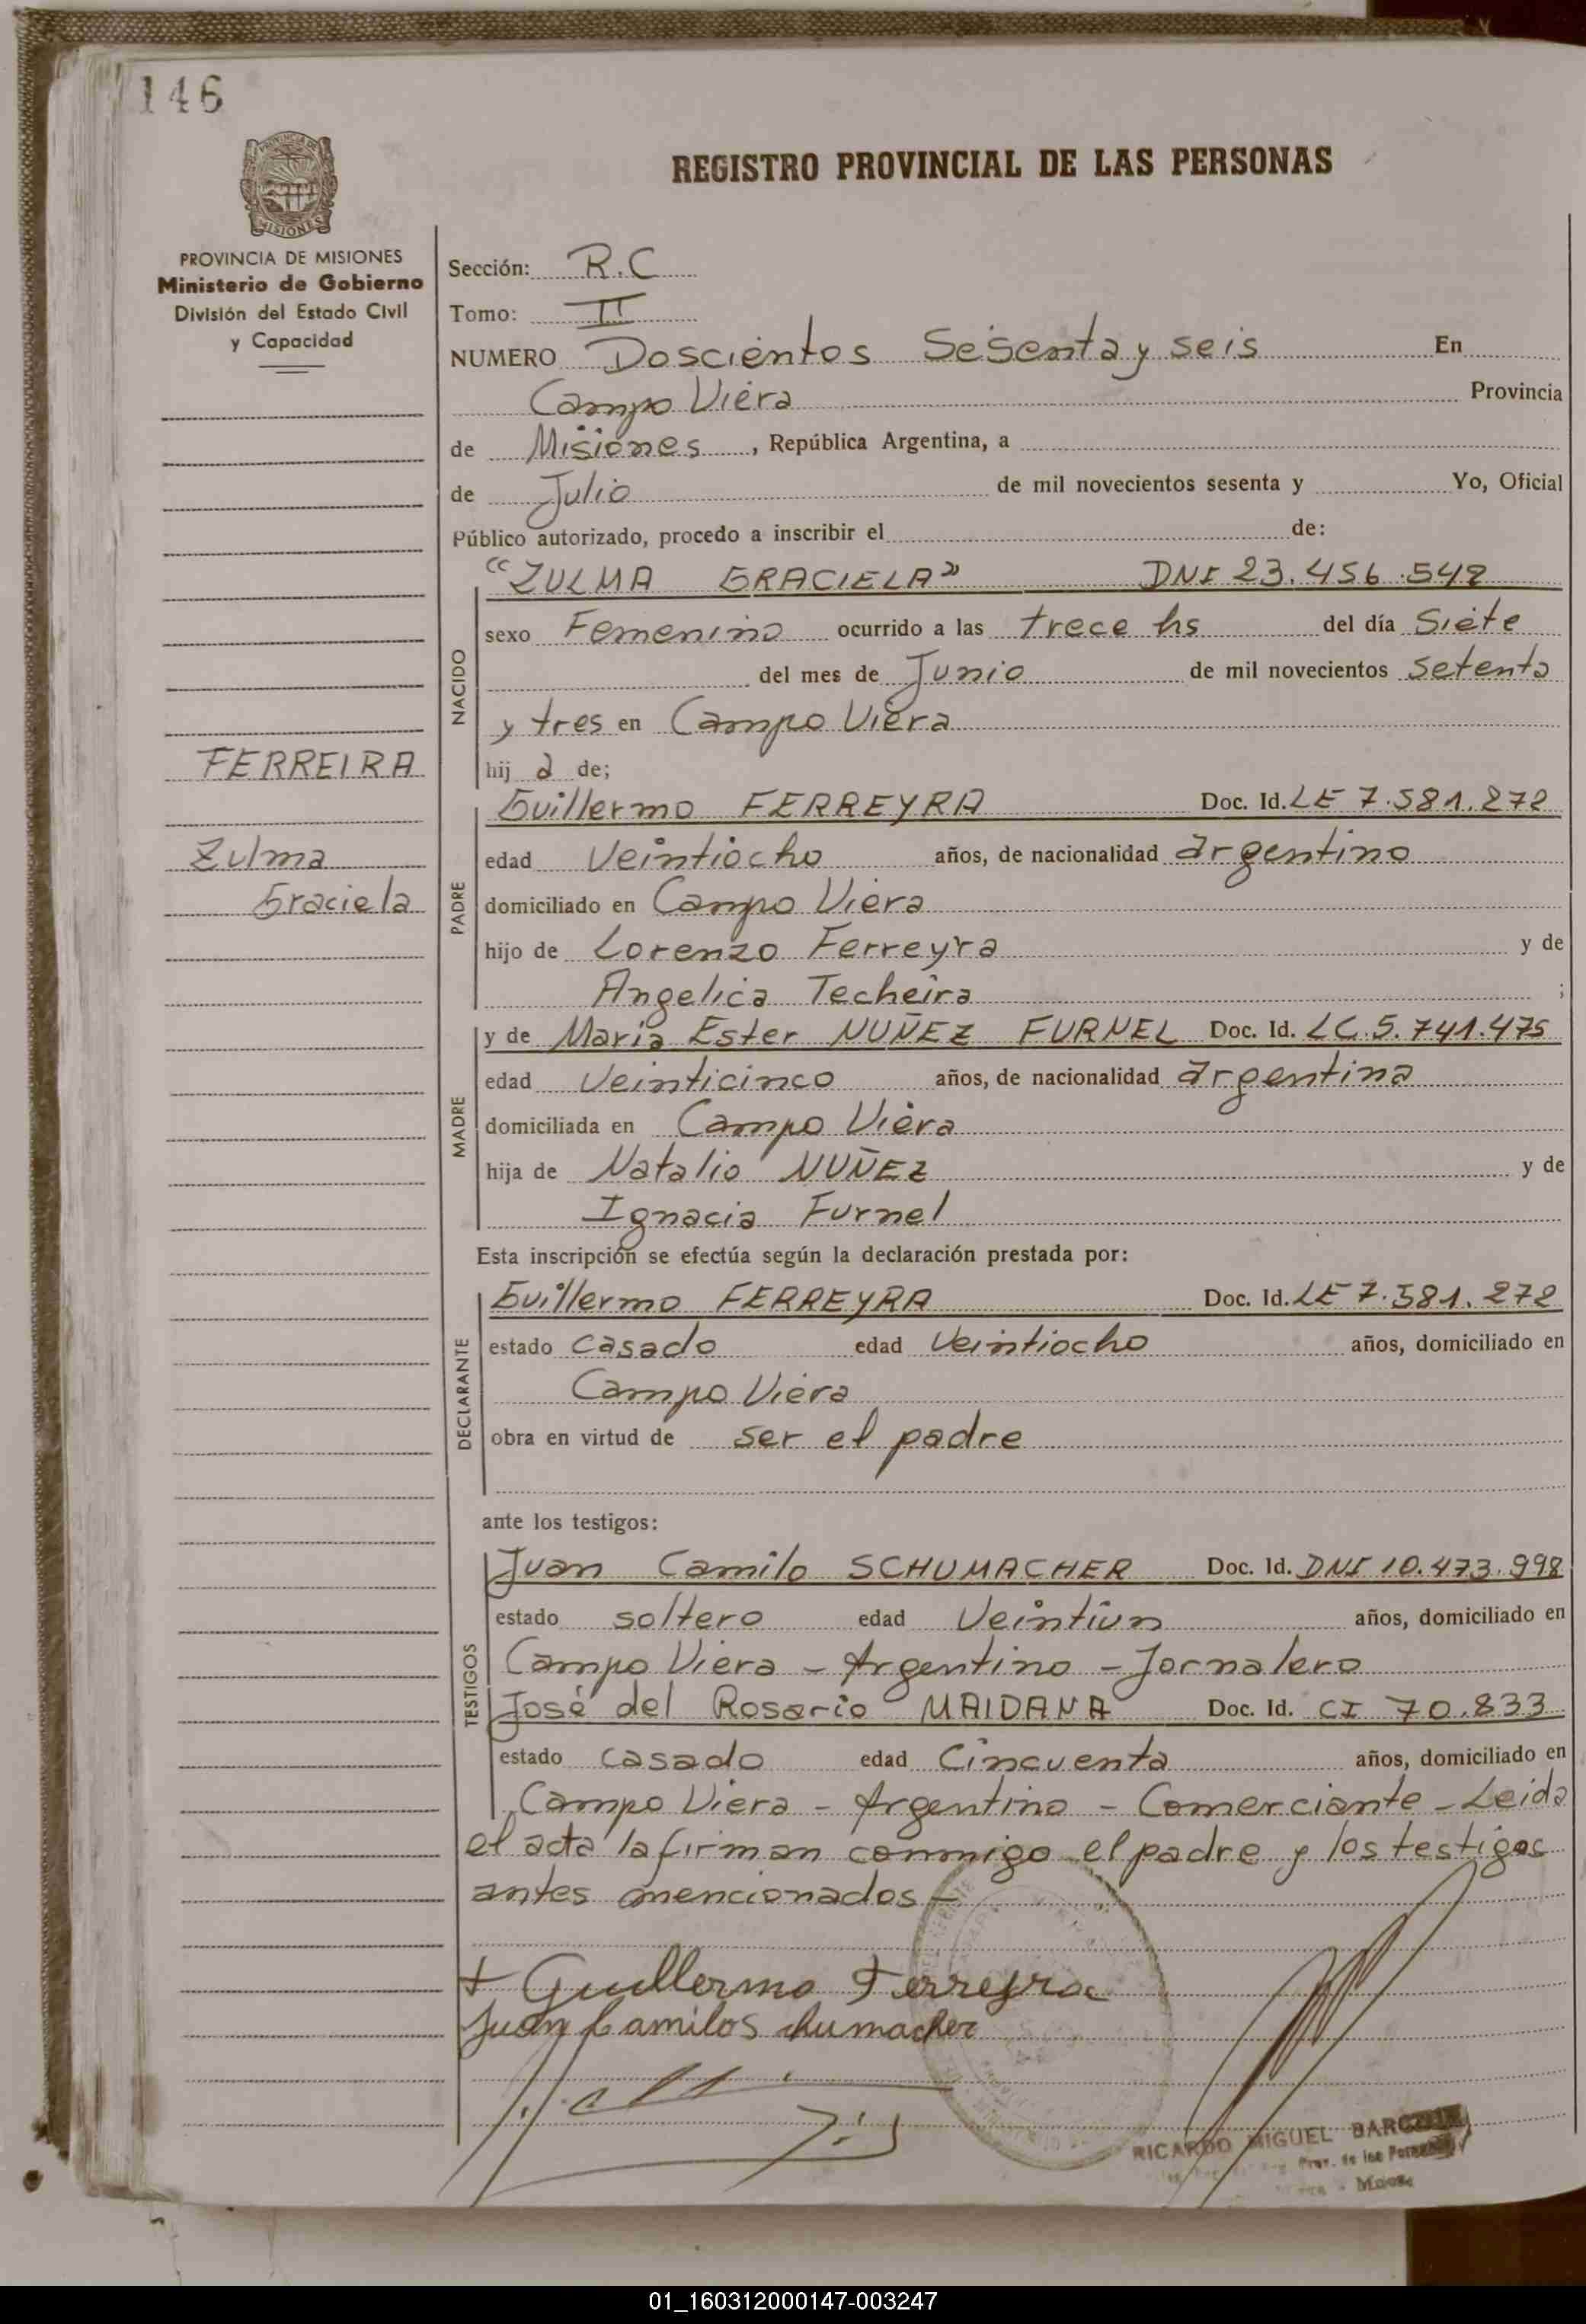 146
PROVINCIA DE
MISIONES
REGISTRO PROVINCIAL DE LAS PERSONAS
PROVINCIA DE MISIONES
Ministerio de Gobierno
División del Estado Civil
y Capacidad
Sección: R.C
Tomo: II
NUMERO Doscientos Sesenta y seis En
Campo Viera Provincia
de Misiones, República Argentina, a
de Julio de mil novecientos sesenta y Yo, Oficial
Público autorizado, procedo a inscribir el de:
NACIDO
"ZULMA GRACIELA" DNI 23.456.542
sexo Femenino ocurrido a las trece hs del día Siete
del mes de Junio de mil novecientos setenta
y tres en Campo Viera
hij a de;
FERREIRA
Zulma
Graciela
PADRE
Guillermo FERREYRA Doc. Id. LE 7.581.272
edad Veintiocho años, de nacionalidad argentino
domiciliado en Campo Viera
hijo de Lorenzo Ferreyra y de
Angelica Techeira ;
MADRE
y de María Ester NUÑEZ FURNEL Doc. Id. LC.5.741.475
edad Veinticinco años, de nacionalidad argentina
domiciliada en Campo Viera
hija de Natalio NUÑEZ y de
Ignacia Furnel
Esta inscripción se efectúa según la declaración prestada por:
DECLARANTE
Guillermo FERREYRA Doc. Id. LE 7.581.272
estado casado edad Veintiocho años, domiciliado en
Campo Viera
obra en virtud de ser el padre
ante los testigos:
TESTIGOS
Juan Camilo SCHUMACHER Doc. Id. DNI 10.473.998
estado soltero edad Veintiún años, domiciliado en
Campo Viera - Argentino - Jornalero
José del Rosario MAIDANA Doc. Id. CI 70.833
estado casado edad Cincuenta años, domiciliado en
Campo Viera - Argentino - Comerciante - Leida
el acta la firman conmigo el padre y los testigos
antes mencionados -
+ Guillermo Ferreyra
Juan Camilo Schumacher
RICARDO MIGUEL
Prov. de las
01_160312000147-003247